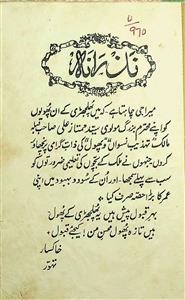 ۵/۹۲۵
نذرانہ
میرا جی چاہتا ہے کہ میں پھلجھڑی کے ان پھولوں
کو اپنے محترم بزرگ مولوی سید ممتاز علی صاحب
مالک تہذیب نسواں و پھول کی ذات گرامی پنچھاور
کروں جنہوں نے ملک کے بچوں کی تعلیمی ضرورتوں کو
سب سے پہلے سمجھا۔ اور ان کے سود و بہبود میں اپنی
عمر کا بڑا حصہ صرف کیا۔
بہر قبول پیش ہیں یہ پھلجھڑی کے پھول
ہیں تازہ پھول محسن من! کیجئے قبول۔
خاکسار
تہور